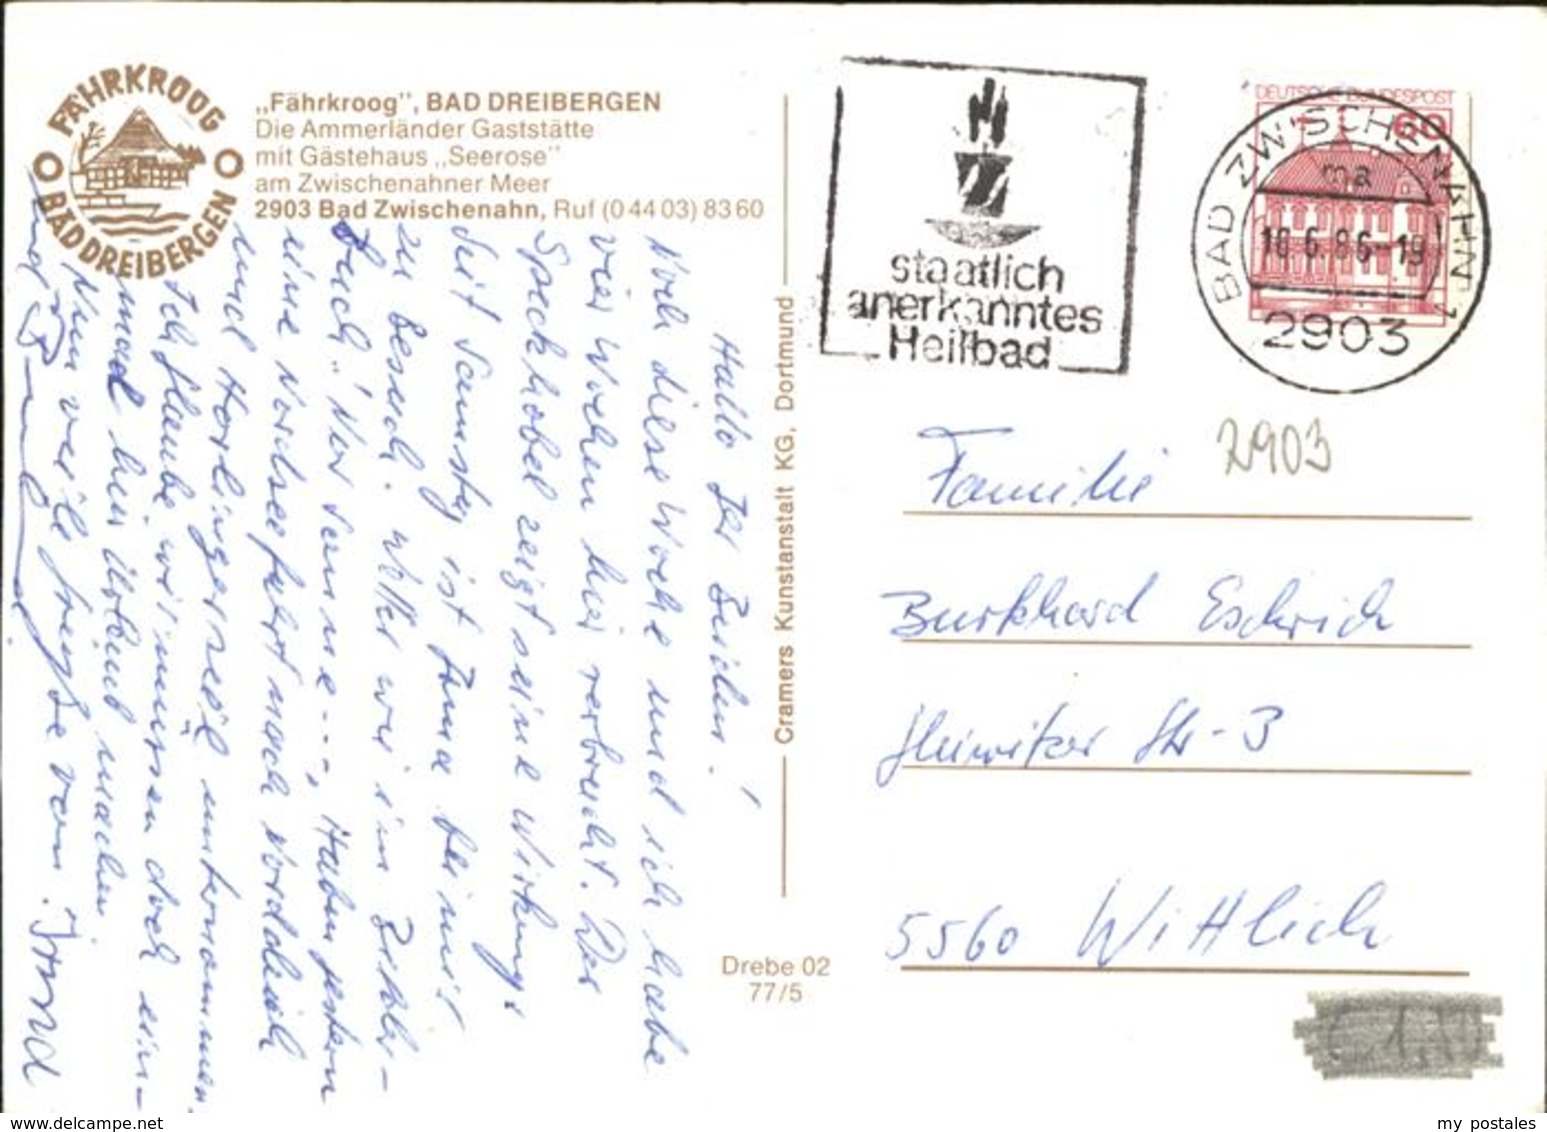 FÄHRKROOG
BAD DREIBERGEN
„Fährkroog”, BAD DREIBERGEN
Die Ammerländer Gaststätte
mit Gästehaus „Seerose”
am Zwischenahner Meer
2903 Bad Zwischenahn, Ruf (0 44 03) 83 60
Hallo Ihr
Noch diese Woche und ich habe
vier Wochen hier verbracht. Der
Speckhobel zeigt seine Wirkung.
Seit Samstag ist bei mir
zu Besuch. Wetter wie im
Buch. Nur Sonne..., Haben gestern
eine Nordseefahrt nach Norddeich
und unternommen.
Ich glaube, wir müssen doch ein-
mal hier Urlaub machen.
Nun viele Grüße von
und
Cramers Kunstanstalt KG, Dortmund
Drebe 02
77/5
staatlich
anerkanntes
Heilbad
DEUTSCHE BUNDESPOST
60
BAD ZWISCHENAHN 1
ma
16.6.86-19
2903
2903
Familie
Burkhard Eschrich
Str. 3
5560 Wittlich
my postales
www.delcampe.net